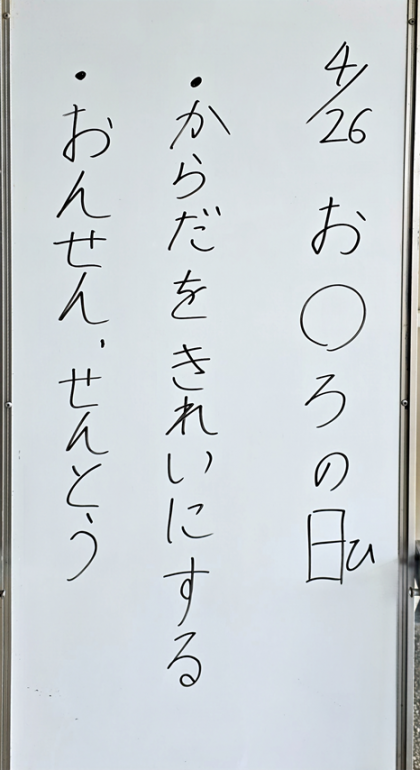 4/26 お〇ろの日ひ
・からだをきれいにする
・おんせん、せんとう